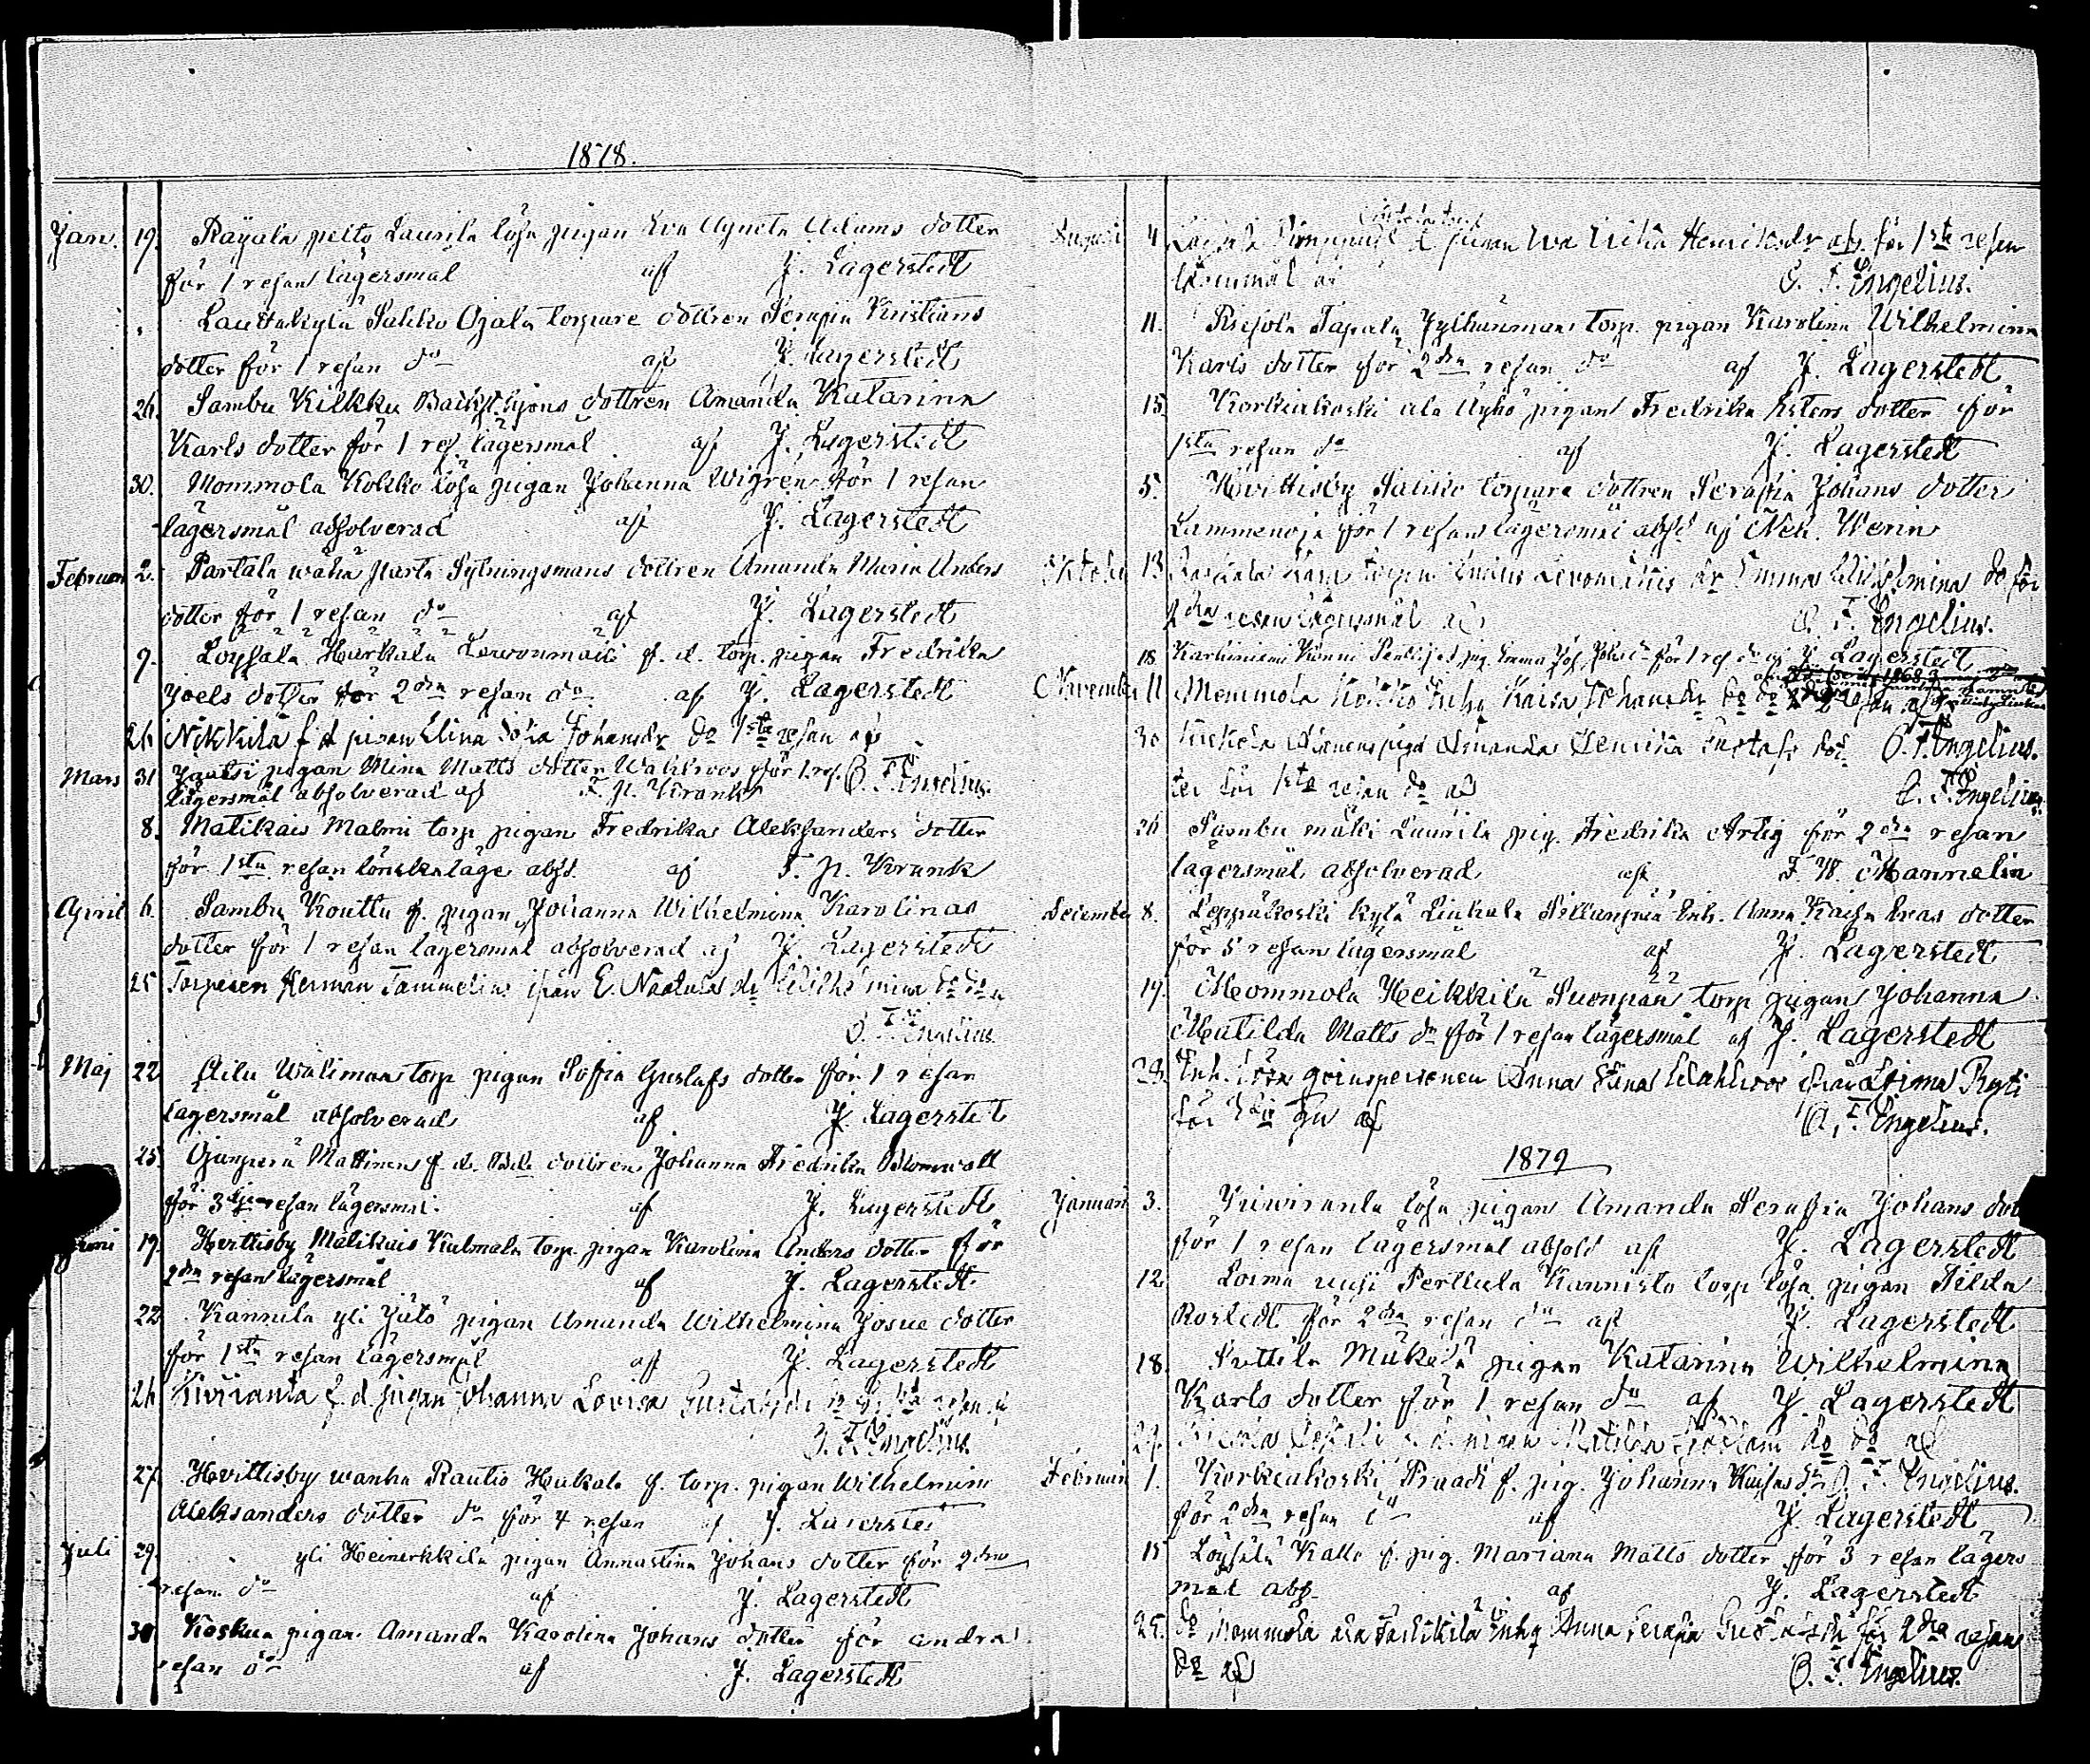 1878.
Jan. 19. Rayala peltо Laurila lösa pigan Eva Agneta Adams dotter
för 1 resan lägersmål af J. Lagerstedt
Lauttakylä Sahko Ojala torpare dottren Serafia Kristians
dotter för 1 resan do af J. Lagerstedt
26. Sambu Kilkku Backst. hjons dottren Amanda Katarina
Karls dotter för 1 res. lägersmål af J. Lagerstedt
30. Mommola Kokko lösa pigan Johanna Wigren för 1 resan
lägersmål absolverad af J. Lagerstedt
Februari 2. Partala wäha parta Sytningsmans dottren Amanda Maria Anders
dotter för 1 resan do af J. Lagerstedt
9. Loysälä Hurkala f. d. torp. pigan Fredrika
Joels dotter för 2dra resan do af J. Lagerstedt
26 Nikkilä f d pigan Elina Sofia Johansdr do 1sta resan af
Mars 31 pigan Mina Matts dotter Wahlroos för 1 res. O. F. Engelius.
lägersmål absolverad af F. P. Krank
8. Matikais Malmi torp pigan Fredrika Aleksanders dotter
för 1sta resan lönskaläge abs. af F. P. Krank
April 6. Sambu Kouttu f. pigan Johanna Wilhelmina Karolinas
dotter för 1 resan lägersmål absolverad af J. Lagerstedt
25 Torparen Herman Tammelins E. Naatula dr Wilhelmina do do
O. F. Engelius.
Maj 22 Äilu Walimaa torp pigan Sofia Gustafs dotter för 1 resan
lägersmål absolverad af J. Lagerstedt
25. Ojanperä Mattinen f. d. dottren Johanna Fredrika Blomwall
för 3dje resan lägersmål. af J. Lagerstedt
Juni 19. Hvittisby Matikais Kulmala torp. pigan Karolina Anders dotter för
2dra resan lägersmål af J. Lagerstedt
22 Kannila yli Jätö pigan Amanda Wilhelmina Josua dotter
för 1sta resan lägersmål af J. Lagerstedt
26 f. d pigan Johanna Lovisa Gustafsdr 1sta resan af
O. F. Engelius.
27. Hvittisby wanha Rautio Hukala f. torp. pigan Wilhelmina
Aleksanders dotter do för 4 resan af J. Lagerstedt
Juli 29. yli Heinerkkilä pigan Annastina Johans dotter för 2dra
resan do af J. Lagerstedt
30 Keskua pigan Amanda Karolina Johans dotter för andra
resan do af J. Lagerstedt
Augusti 4 pigan Eva Ulrika Henriksdr abs. för 1sta resan
lägersmål af O. F. Engelius.
11. Tapala Jylhänmaa torp. pigan Karolina Wilhelmina
Karls dotter för 2dra resan do af J. Lagerstedt
15. Korkiakoski ala Äyhö pigan Fredrika Esters dotter för
1sta resan do af J. Lagerstedt
5. Hvittisby Sahko torpare dottren Serafia Johans dotter
Lammenoja för 1 resan lägersmål abs. af Nek. Wenin
Oktober 13 Emma Wilhelmina do för
2dra resan lägersmål af O. F. Engelius.
18. Karhiniemi Kunni pig. Emma Jos. för 1 res. do af J. Lagerstedt
November 11 Mommola Kokko Inhy Kaisa Johansdr do do 2 resan af
O. F. Engelius.
30 pigan Amanda Henrika Gustafs dot-
ter för 1sta resan do af O. F. Engelius.
26 Sambu mäki Laurila pig. Fredrika Artig för 2dra resan
lägersmål absolverad af F. W. Mannelin
December 8. Leppäkoski kylä Liukala Inh. Anna Kaisa Evas dotter
för 5 resan lägersmål af J. Lagerstedt
19. Mommola Heikkilä Suonpää torp pigan Johanna
Matilda Matts dr för 1 resan lägersmål af J. Lagerstedt
28. Inh. Anna Stina Wahlroos från Loima
för af O. F. Engelius.
1879
Januari 3. lösa pigan Amanda Serafia Johans
för 1 resan lägersmål af J. Lagerstedt
12. Loima uusi Perttula Kannisto torp lösa pigan Hilda
Rostedt för 2dra resan do af J. Lagerstedt
18. Suttila Mäkelä pigan Katarina Wilhelmina
Karls dotter för 1 resan do af J. Lagerstedt
do do af
Februari 1. Korkiakoski Praadi f. pig. Johanna Kaisas dr O. F. Engelius.
för 2dra resan do af J. Lagerstedt
15 Loysälä Kallo f. pig. Mariana Matts dotter för 3 resan lägers
mål abs. af J. Lagerstedt
25. Mommola Inhy Anna Serafia för 2dra resan
do af O. F. Engelius.